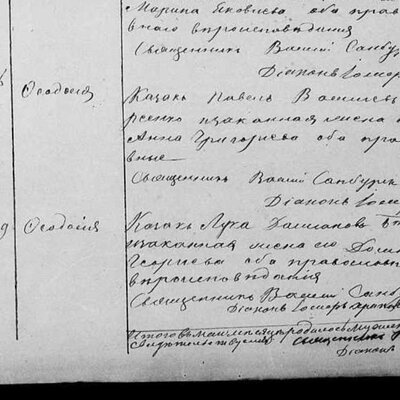 Марина Яковлева оба прав
внаго вѣроисповѣданія
Священникъ Василій Самбур
Діаконъ Іосиф
Ѳеодосія
Казакъ Павелъ Василіевъ
рсенко и законная жена
Анна Григоріева оба пра
вные
Священникъ Василій Самбург
Діаконъ Іос
9 Ѳеодосія
Казакъ Лука Даміановъ
и законная жена его Домн
Георгіева оба православ
вѣроисповѣданія
Священникъ Василій Самб
Діаконъ Іосифъ
Итого въ маи мѣсяцѣ родилось мужеск
Священникъ
Діаконъ